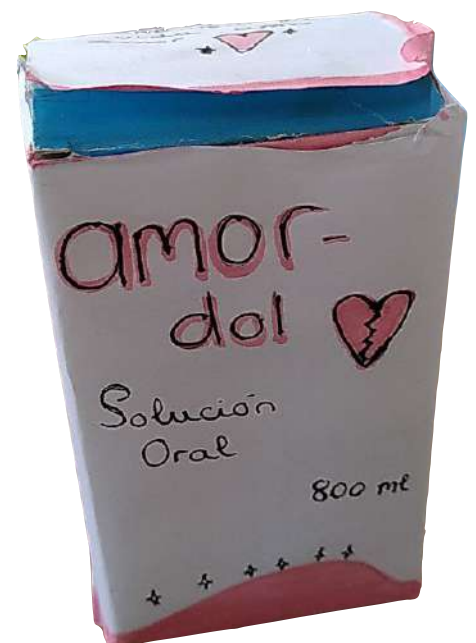 amor-
dol
Solución
Oral
800 ml